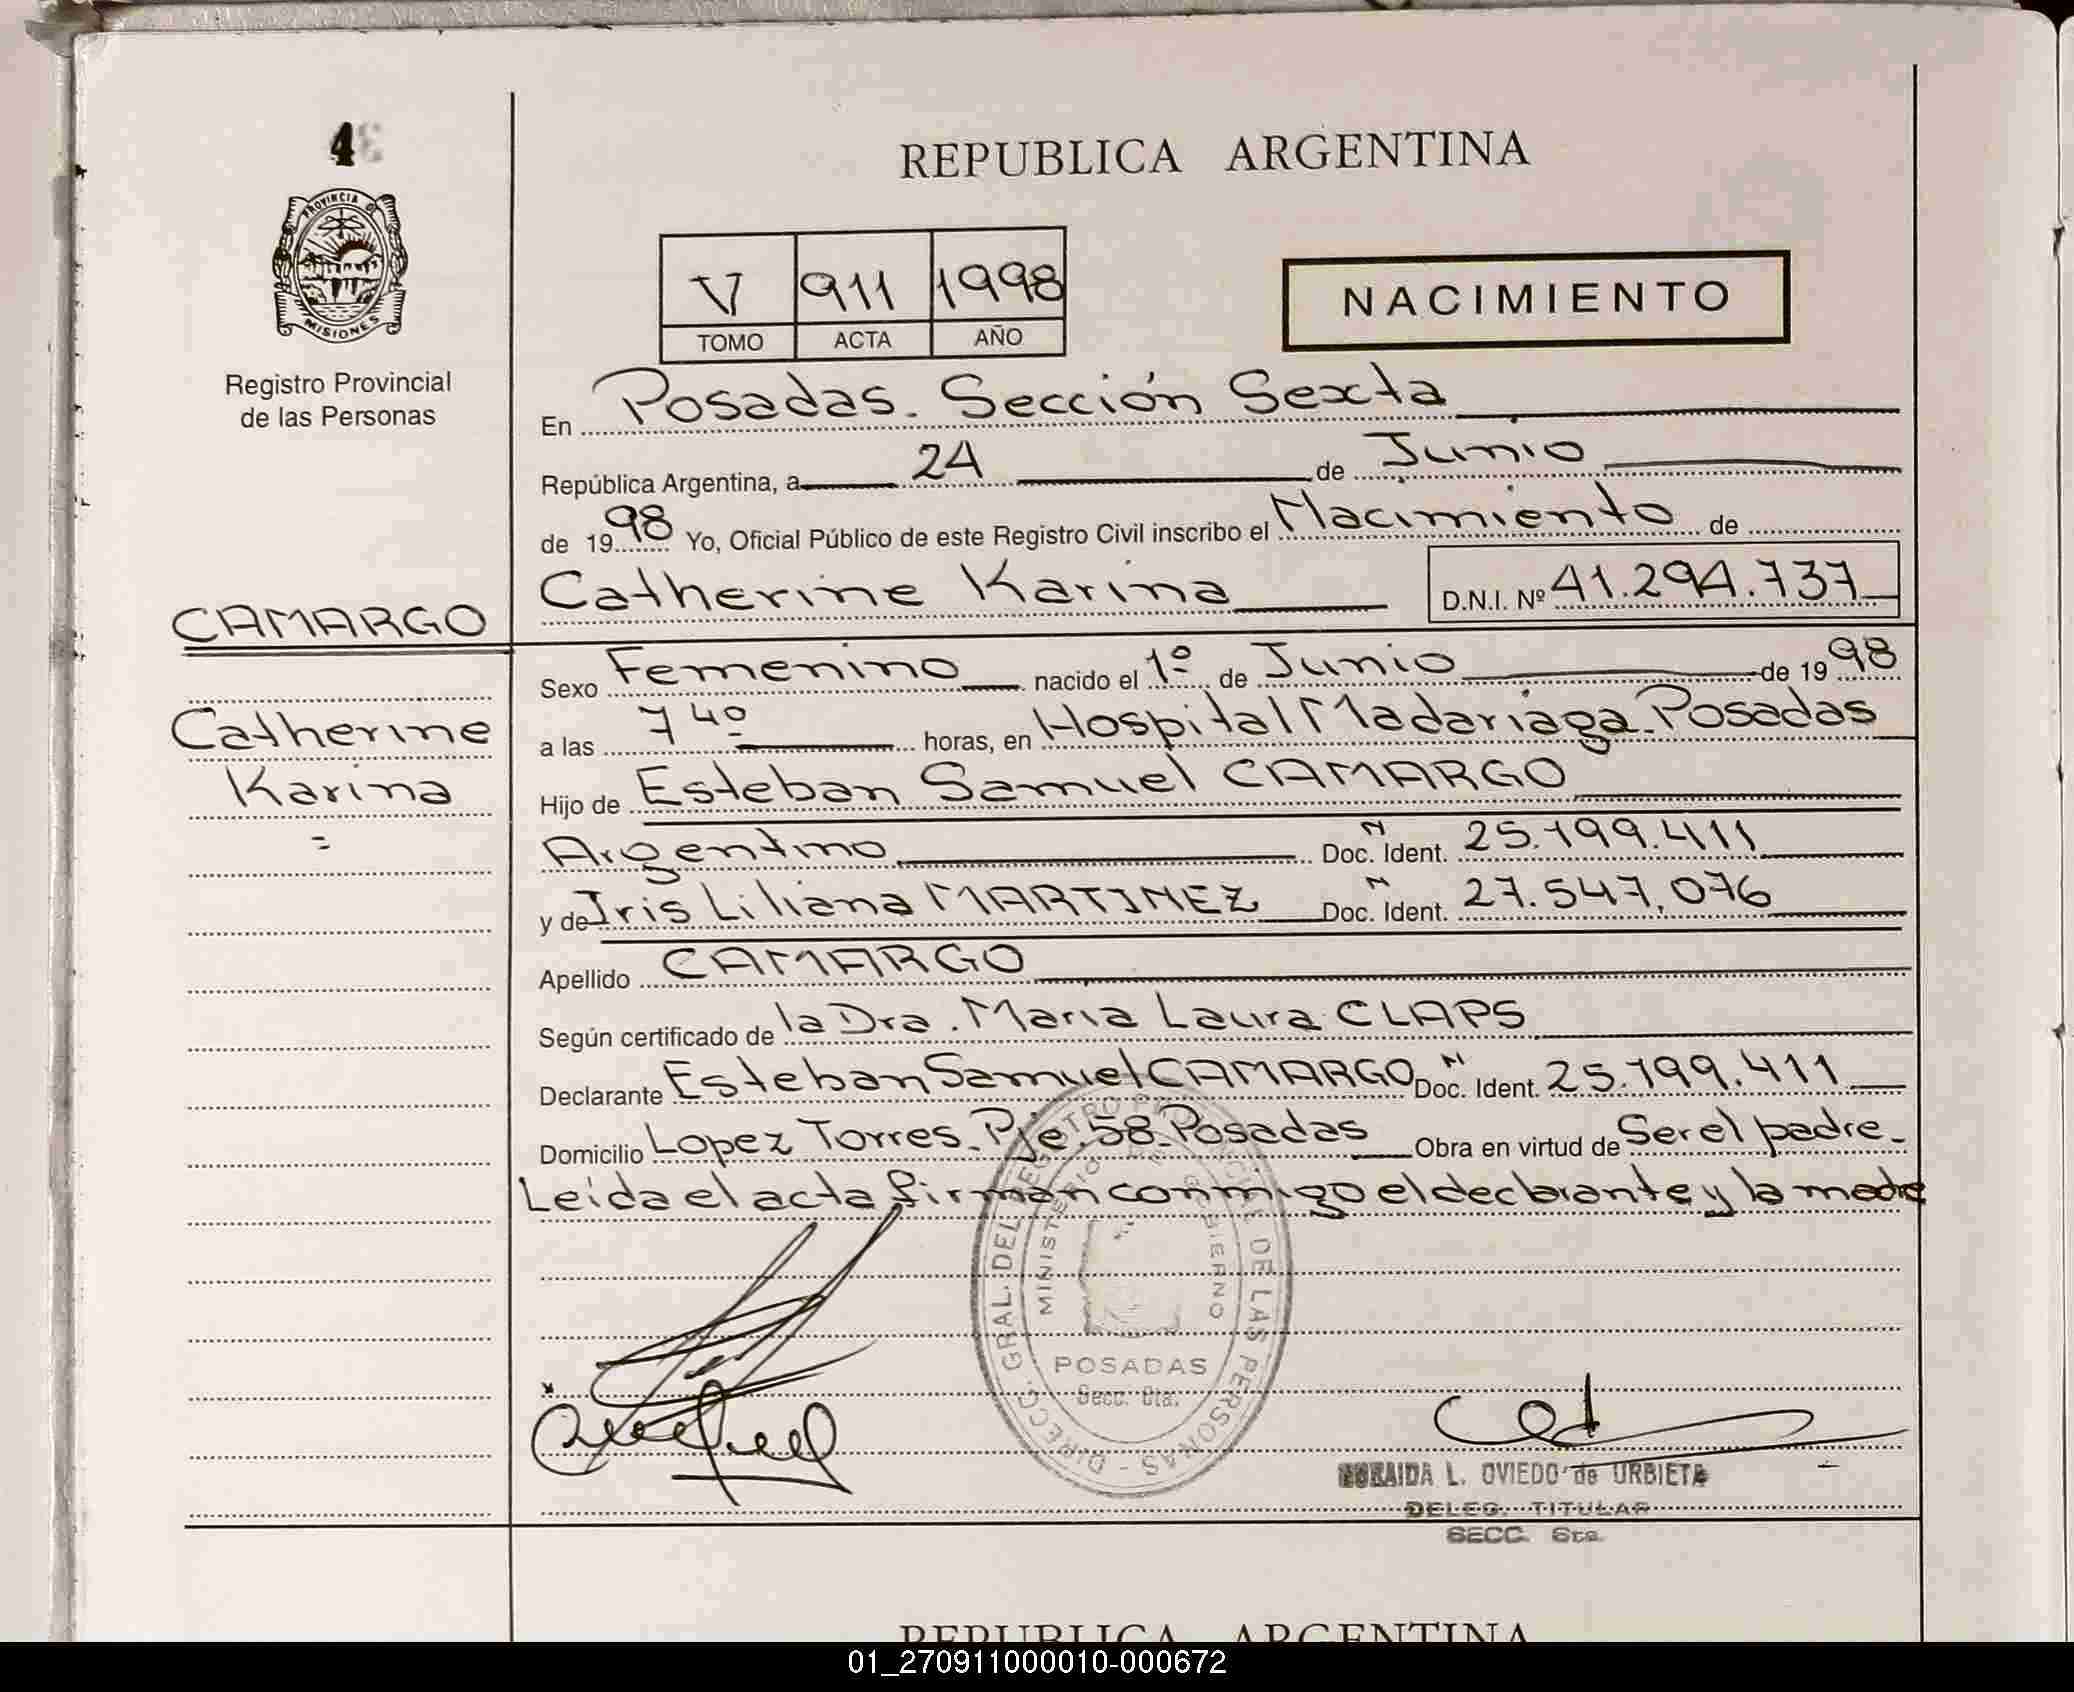 4
PROVINCIA D
MISIONES
Registro Provincial
de las Personas
REPUBLICA ARGENTINA
V 911 1998
TOMO ACTA AÑO
NACIMIENTO
En Posadas. Sección Sexta
República Argentina, a 24 de Junio
de 1998 Yo, Oficial Público de este Registro Civil inscribo el Nacimiento de
Catherine Karina D.N.I. Nº 41.294.737
CAMARGO
Catherine
Karina
=
Sexo Femenino nacido el 1º de Junio de 1998
a las 7 40 horas, en Hospital Madariaga. Posadas
Hijo de Esteban Samuel CAMARGO
Argentino Doc. N Ident. 25.199.411
y de Iris Liliana MARTINEZ Doc. N Ident. 27.547.076
Apellido CAMARGO
Según certificado de la Dra. Maria Laura CLAPS
Declarante Esteban Samuel CAMARGO Doc. N Ident. 25.199.411
Domicilio Lopez Torres. Pje. 58. Posadas Obra en virtud de Ser el padre.
Leída el acta firman conmigo el declarante y la madre
DIRECC. GRAL. DEL REGISTRO PROVINCIAL DE LAS PERSONAS -
MINISTERIO DE GOBIERNO
POSADAS
Secc. 6ta.
L. OVIEDO de URBIETA
DELEG. TITULAR
SECC. 6ta.
REPUBLICA ARGENTINA
01_270911000010-000672